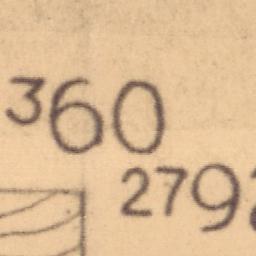 360
279